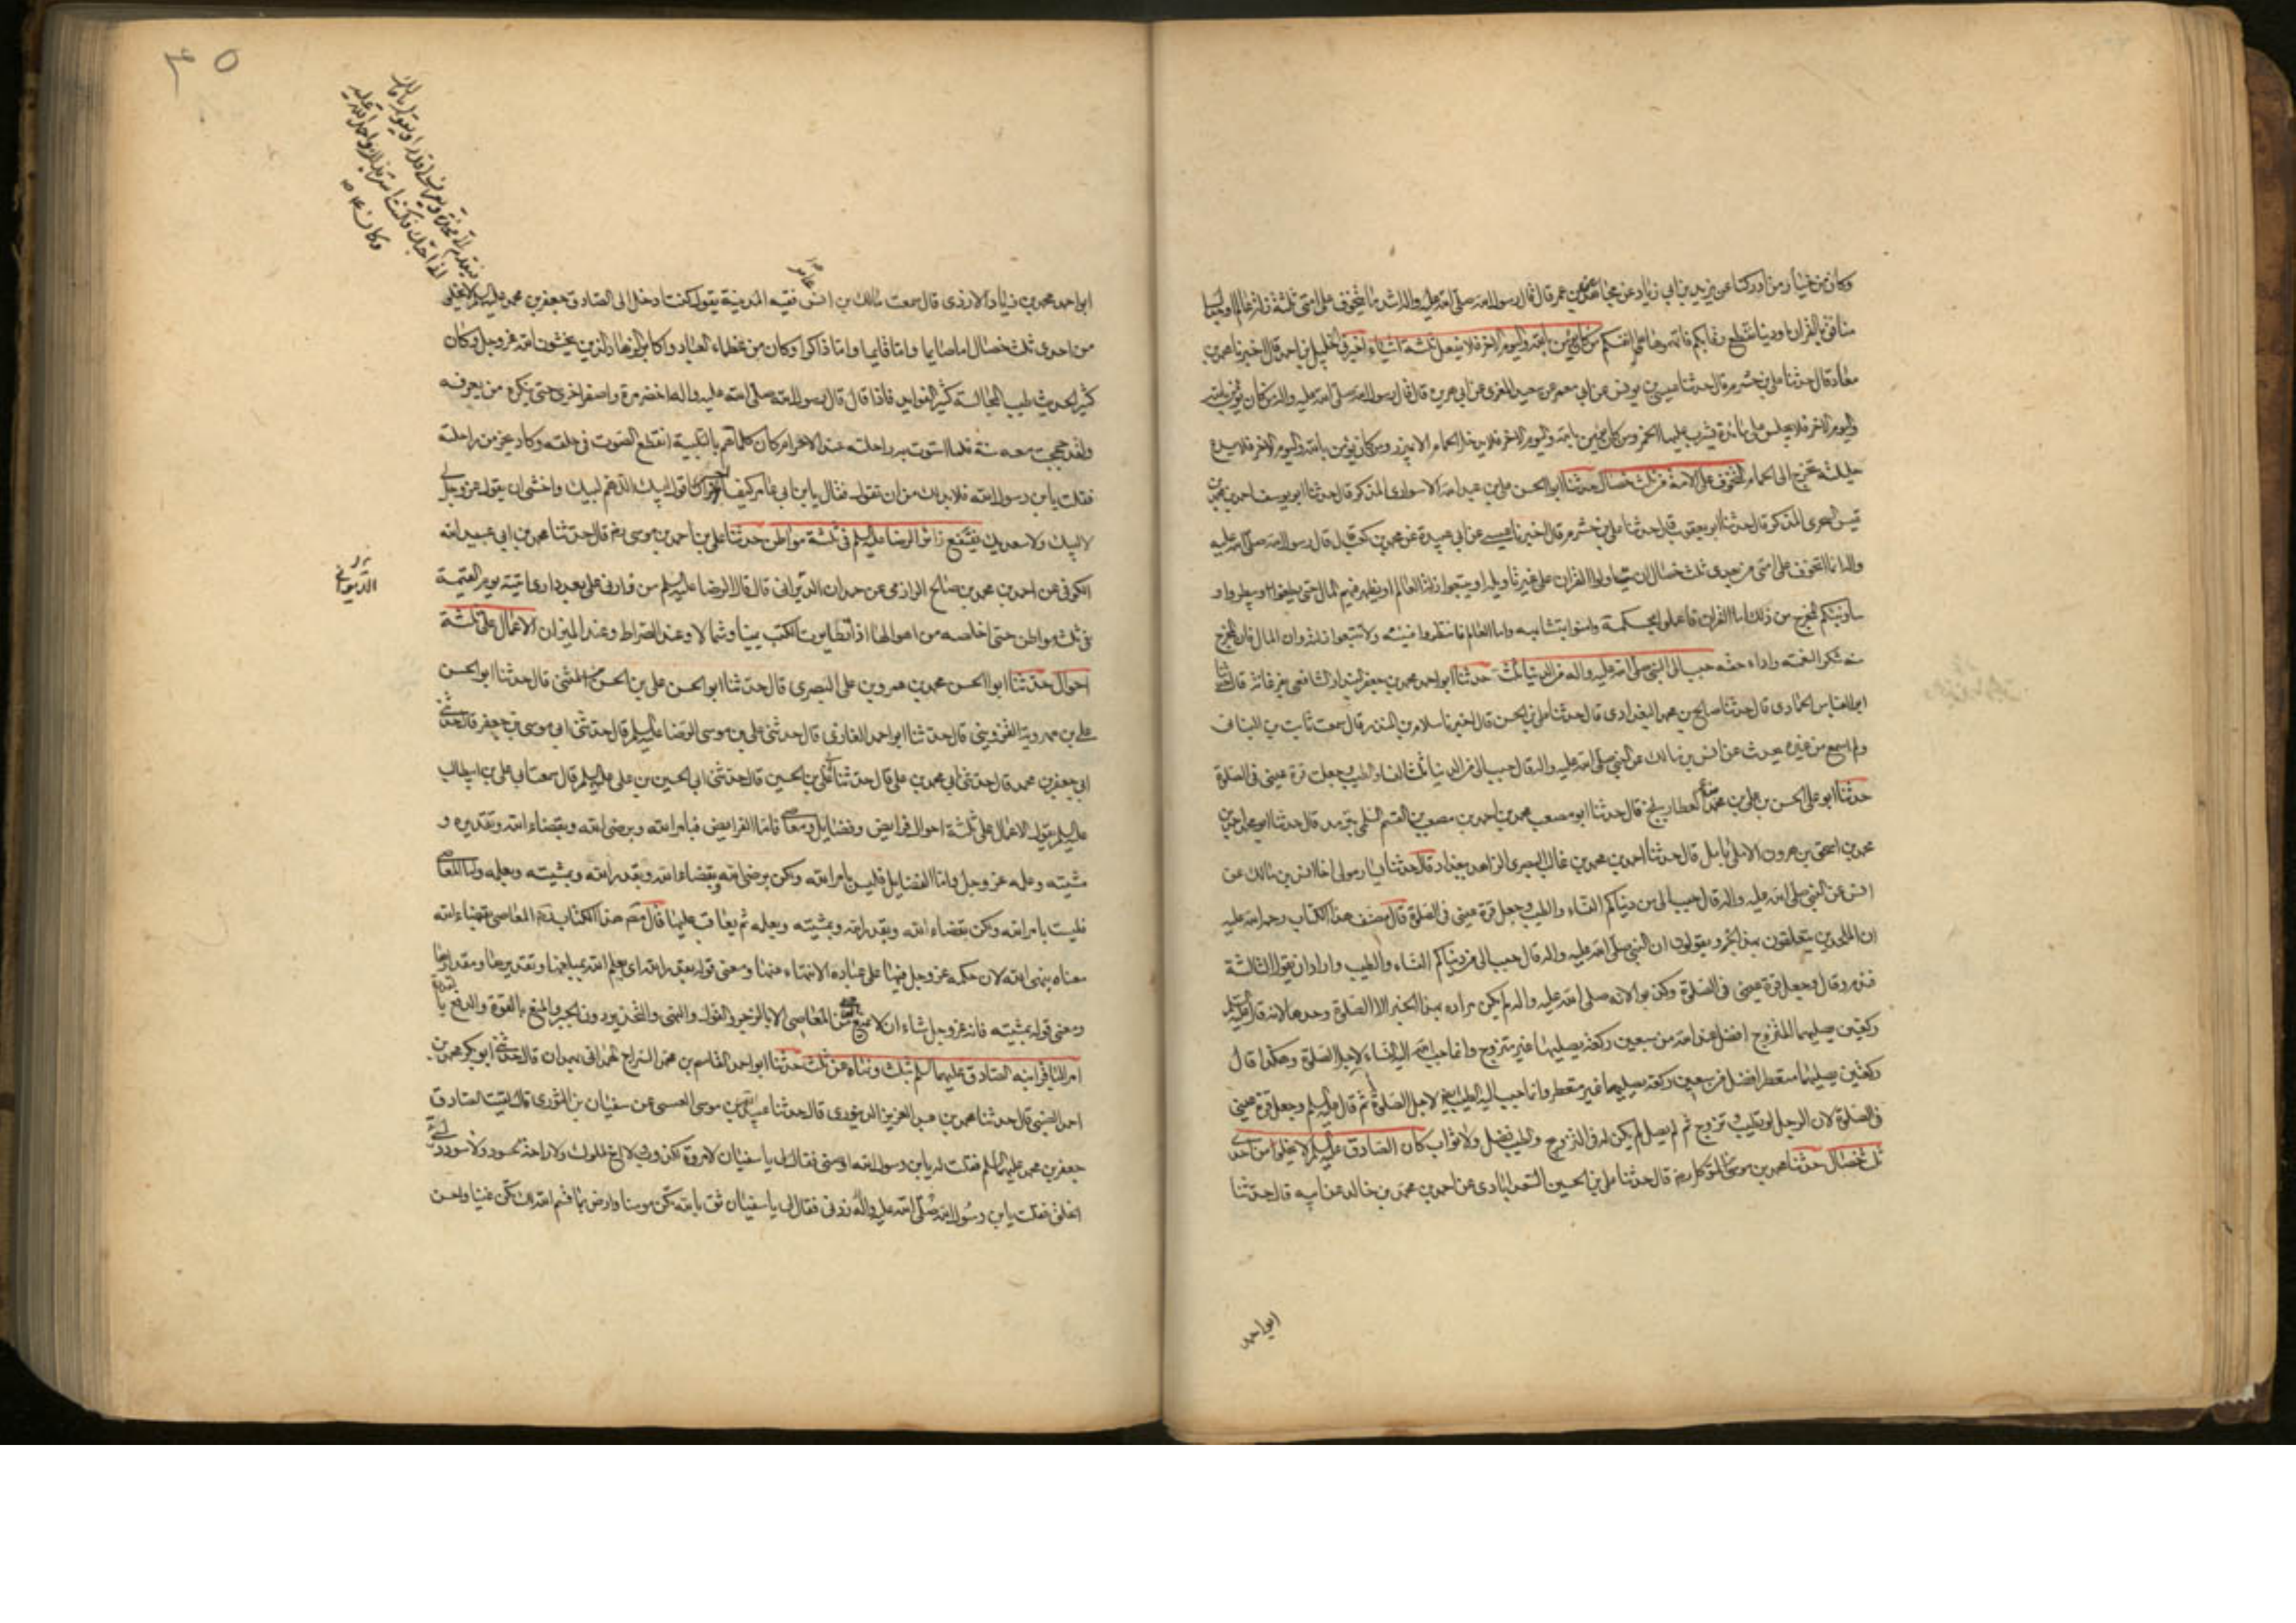 وكان من خيار من ادركنا عن يزيد بن ابي زياد عن مجاهد عن ابن عمر قال قال رسول الله صلى الله عليه واله اشد ما يتخوف على امتي ثلثة زلة عالم او جدال
منافق بالقران او دنيا تقطع رقابكم فاتهموها على انفسكم من كان يؤمن بالله واليوم الاخر فلا يفعل ثلثة اشياء اخبرني الخليل بن احمد قال اخبرنا
معاذ قال حدثنا علي بن خشرم قال حدثنا عيسى بن يونس عن ابي معمر عن سعيد المقري عن ابي هريرة قال قال رسول الله صلى الله عليه واله من كان يؤمن بالله
واليوم الاخر فلا يجلس على مائدة يشرب عليها الخمر ومن كان يؤمن بالله واليوم الاخر فلا يدخل الحمام الا بميزر ومن كان يؤمن بالله واليوم الاخر فلا يدع
حليلته تخرج الى الحمام التخوف على الامة من ثلث خصال حدثنا ابو الحسن علي بن عبد الله الاسواري المذكر قال حدثنا ابو يوسف احمد بن محمد بن
قيس السجزي المذكر قال حدثنا ابو يعقوب قال حدثنا علي بن خشرم قال اخبرنا عيسى عن ابي عبيدة عن محمد بن كعب قال قال رسول الله صلى الله عليه
واله انما اتخوف على امتي من بعدي ثلث خصال ان يتاولوا القران على غير تاويله او يتبعوا زلة العالم او يظهر فيهم المال حتى يطغوا ويبطروا و
سانبئكم المخرج من ذلك اما القران فاعملوا بمحكمه وامنوا بمتشابهه واما العالم فانتظروا فيئته ولا تتبعوا زلته وان المال فان المخرج
منه شكر النعمة واداء حقه حبب الى النبي صلى الله عليه واله من الدنيا ثلث حدثنا ابو احمد محمد بن جعفر البندار الشافعي بفرغانة قال حدثنا
ابو العباس الحمادي قال حدثنا صالح بن محمد البغدادي قال حدثنا علي بن الحسن قال اخبرنا سلام بن المنذر قال سمعت ثابت بن البناني
ولم اسمع من غيره يحدث عن انس بن مالك عن النبي صلى الله عليه واله قال حبب الي من الدنيا ثلث النساء والطيب وجعلت قرة عيني في الصلوة
حدثنا ابو علي الحسن بن علي بن محمد العطار ببلخ قال حدثنا ابو مصعب محمد بن احمد بن مصعب بن القسم السلمي بترمد قال حدثنا ابو محمد احمد بن
محمد بن اسحق بن هرون الاملي بامل قال حدثنا احمد بن محمد بن غالب البصري الزاهد ببغداد قال حدثنا يسار مولى انس بن مالك عن
انس عن النبي صلى الله عليه واله قال حبب الي من دنياكم النساء والطيب وجعل قرة عيني في الصلوة قال مصنف هذا الكتاب رحمة الله عليه
ان الملحدين يتعلقون بهذا الخبر ويقولون ان النبي صلى الله عليه واله قال حبب الي من دنياكم النساء والطيب واراد ان يقول الثالثة
فندم وقال وجعل قرة عيني في الصلوة وكذبوا لانه صلى الله عليه واله لم يكن مراده بهذا الخبر الا الصلوة وحدها لانه قال عليه السلم
ركعتين يصليهما المتزوج افضل عند الله من سبعين ركعة يصليها غير متزوج وانما حبب الله اليه النساء لاجل الصلوة وهكذا قال
ركعتين يصليهما متعطر افضل من سبعين ركعة يصليهما غير متعطر وانما حبب اليه الطيب ايضا لاجل الصلوة ثم قال عليه السلم وجعل قرة عيني
في الصلوة لان الرجل لو تطيب وتزوج ثم لم يصل لم يكن له في التزويج والطيب فضل ولا ثواب كان الصادق عليه السلم لا يخلوا من احدى
ثلث خصال حدثنا محمد بن موسى المتوكل رضه قال حدثنا علي بن الحسين السعدابادي عن احمد بن محمد بن خالد عن ابيه قال حدثنا
ابو احمد
٤٥
ابو احمد محمد بن زياد الازدي قال سمعت مالك بن انس فقيه المدينة يقول كنت ادخل الى الصادق جعفر بن محمد عليه السلم لا يخلو
من احدى ثلث خصال اما صايما واما قايما واما ذاكرا وكان من عظماء العباد واكابر الزهاد الذين يخشون الله عز وجل وكان
كثير الحديث طيب المجالسة كثير الفوايد فاذا قال قال رسول الله صلى الله عليه واله اخضر مرة واصفر اخرى حتى ينكره من يعرفه
ولقد حججت معه سنة فلما استوت به راحلته عند الاحرام كان كلما هم بالتلبية انقطع الصوت في حلقه وكاد يخر من راحلته
فقلت يابن رسول الله فلا بد لك من ان تقول فقال يا بن ابي عامر كيف اجسر ان اقول لبيك اللهم لبيك واخشى ان يقول عز وجل
لا لبيك ولا سعديك ينتفع زائر الرضا عليه السلم في ثلثة مواطن حدثنا علي بن احمد بن موسى رضه قال حدثنا محمد بن ابي عبد الله
الكوفي عن احمد بن محمد بن صالح الرازي عن حمدان الديواني قال قال الرضا عليه السلم من زارني على بعد داري اتيته يوم القيمة
في ثلث مواطن حتى اخلصه من اهوالها اذا تطايرت الكتب يمينا وشمالا وعند الصراط وعند الميزان الاعمال على ثلثة
احوال حدثنا ابو الحسن محمد بن عمرو بن علي البصري قال حدثنا ابو الحسن علي بن الحسن المثنى قال حدثنا ابو الحسن
علي بن مهرويه القزويني قال حدثنا ابو احمد الغازي قال حدثني علي بن موسى الرضا عليه السلم قال حدثني ابي موسى بن جعفر قال حدثني
ابي جعفر بن محمد قال حدثني ابي محمد بن علي قال حدثنا علي بن الحسين قال حدثني ابي الحسين بن علي عليه السلم قال سمعت ابي علي بن ابيطالب
عليه السلم يقول الاعمال على ثلثة احوال فرايض وفضايل ومعاصي فاما الفرايض فبامر الله وبرضى الله وبقضاء الله وتقديره و
مشيته وعلمه عز وجل واما الفضايل فليس بامر الله ولكن برضى الله وبقضاء الله وبقدر الله وبمشيته وبعلمه واما المعاصي
فليست بامر الله ولكن بقضاء الله وبقدر الله وبمشيته وبعلمه ثم يعاقب عليها قال مصنف هذا الكتاب المعاصي بقضاء الله
معناه بنهي الله لان حكمه عز وجل فيها على عباده الانتهاء عنها ومعنى قوله بقدر الله اي بعلم الله بمبلغها وتقديرها ومقدارها
ومعنى قوله بمشيته فانه عز وجل شاء ان لا يمنع من المعاصي الا بالزجر والقول والنهي والتحذير دون الجبر والمنع بالقوة والدفع بالقدرة
امر الباقر ابنه الصادق عليهما السلم بثلث ونهاه عن ثلث حدثنا ابو احمد القاسم بن محمد السراج الهمداني بهمدان قال حدثني ابو بكر محمد بن
احمد الضبي قال حدثنا محمد بن عبد العزيز الدينوري قال حدثنا عبيد الله بن موسى العبسي عن سفيان بن الثوري قال لقيت الصادق
جعفر بن محمد عليهما السلم فقلت له يابن رسول الله اوصني فقال لي يا سفيان لا مروة لكذوب ولا اخ لملوك ولا راحة لحسود ولا سودد لسيئ
الخلق فقلت يابن رسول الله صلى الله عليه واله زدني فقال لي يا سفيان ثق بالله تكن مومنا وارض بما قسم الله لك تكن غنيا واحسن
الديواني